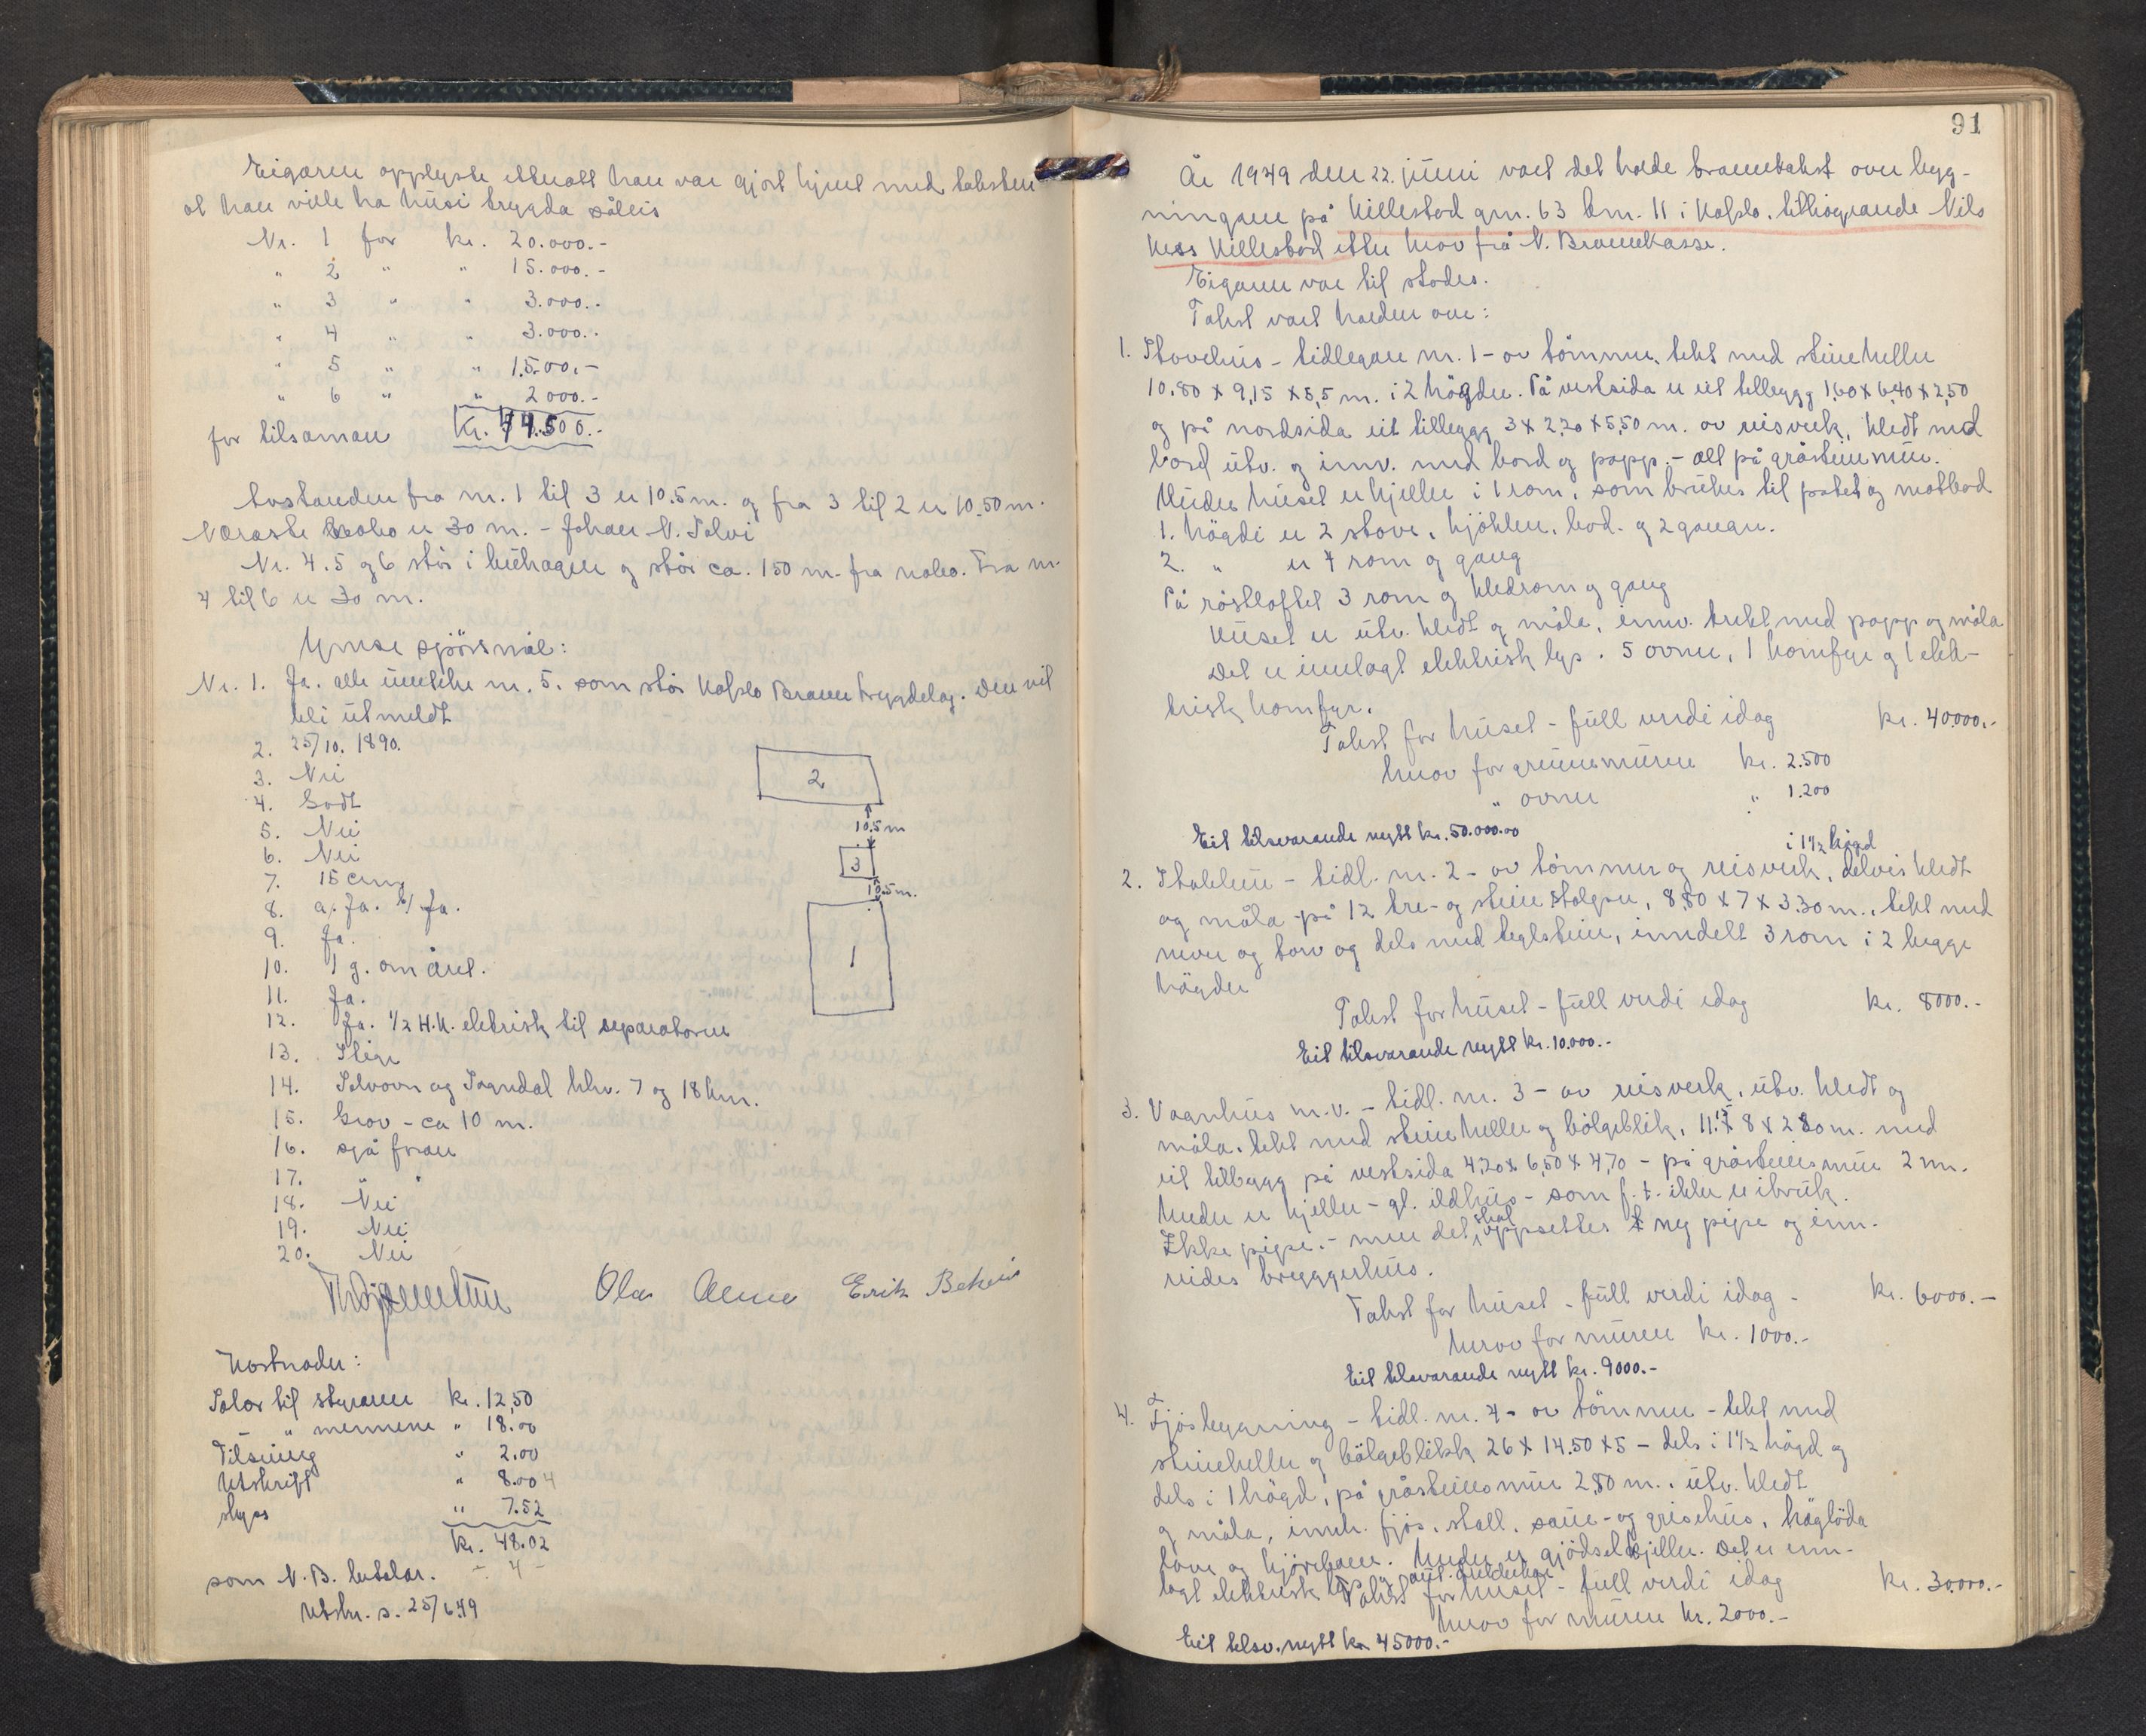 Eigaren opplyste etteratt han var gjort kjent med taksten
at han ville ha husi trygda såleis
Nr. 1 for kr. 20.000.-
" 2 " " 15.000.-
" 3 " " 3.000.-
" 4 " " 3.000.-
" 5 " " 1.500.-
" 6 " " 2000.-
for tilsaman Kr. 44.500.-
Avstanden fra nr. 1 til 3 er 10.5 m. og fra 3 til 2 er 10.50 m.
Næraste nabo er 30 m. - Johan N. Solvi
Nr. 4. 5 og 6 står i buhagen og står ca. 150 m. fra nabo. Fra nr.
4 til 6 er 30 m.
Ymse spörsmål:
Nr. 1. Ja. alle unntke nr. 5. som står Hafslo Branntrygdelag. Den vil
bli utmeldt
2. 25/10. 1890.
3. Nei
4. Godt
5. Nei
6. Nei
7. 15 cm
8. a. Ja. b/ Ja.
9. Ja.
10. 1 g. om året.
11. Ja.
12. Ja. 1/2 H.K. eletrisk til separatoren
13. Stige
14. Solvorn og Sogndal hhv. 7 og 18 km.
15. Grov - ca 10 m.
16. sjå foran
17. " "
18. Nei
19. Nei
20. Nei
2
10.5 m
3
10.5 m.
1
Ola Erik
Kostnader:
Salær til styraren kr. 12,50
" " mennene " 18.00
Tilsning " 2.00
Utskrift " 8.00 4
skyss " 7.52
Kr. 48.02
som N.B. betalar. - 4 -
Utskr. s. 25/6 49
91
År 1949 den 22. juni vart det halde branntakst over bygg-
ningane på Hillestad gnr. 63 bnr. 11 i Hafslo, tilhøyrande Nils
Hess Hillestad etter krav frå N. Brannkasse.
Eigaren var til stades.
Takst vart halden over:
1. Stovehus - tidlegare nr. 1 - av tömmer, tekt med steinheller
10.80 x 9,15 x 5,5 m. i 2 högder. På vestsida er eit tilbygg 1,60 x 6,40 x 2,50
og på nordsida eit tilbygg 3 x 2,20 x 5,50 m. av reisverk, kledt med
bord utv. og innv. med bord og papp. - alt på gråsteinsmur.
Under huset er kjeller i 1 rom, som brukes til potet og matbod
1. högdi er 2 stover, kjökken, bod. og 2 gangar.
2. " er 4 rom og gang
På röstloftet 3 rom og kledrom og gang
Huset er utv. kledt og måla, innv. trekt med papp og måla
Det er innlagt elektrisk lys. 5 ovner, 1 komfyr og 1 elek-
trisk komfyr.
Takst for huset - full verdi idag kr. 40.000.-
herav for grunnmuren kr. 2.500
" ovner " 1.200
Eit tilsvarande nytt kr. 50.000.00
i 1 1/2 högd
2. Stabbur - tidl. nr. 2 - av tömmer og reisverk, delvis kledt
og måla - på 12 tre- og stein stolpar, 8,80 x 7 x 3.30 m., tekt med
never og torv og dels med teglstein, inndelt 3 rom i 2 begge
högder
Takst for huset - full verdi idag kr. 8000.-
Eit tilsvarande nytt kr. 10.000.-
3. Vognhus m.v. - tidl. nr. 3 - av reisverk, utv. kledt og
måla. tekt med steinheller og bölgeblik, 11.15 x 8 x 2 80 m. med
eit tilbygg på vestsida 4,20 x 6,50 x 4,70 - på gråsteinsmur 2 m.
Under er kjeller - gl. eldhus - som f.t. ikke er i bruk.
Ikke pipe. - men det skal oppsettes ny pipe og inn-
reides bryggerhus.
Takst for huset - full verdi idag - kr. 6000.-
herav for muren kr. 1000.-
Eit tilsvarande nytt kr. 9000.-
4. Fjösbygning - tidl. nr. 4 - av tömmer - tekt med
steinheller og bölgeblikk 26 x 14.50 x 5 - dels i 1 1/2 högd og
dels i 1 högd, på gråsteinsmur 2,80 m., utv. kledt
og måla, inneh. fjös, stall, saue- og grisehus, höglöda
låve og kjörebane. Under er gjödselkjeller. Det er inn-
lagt elektrisk lys
Takst for huset - full verdi idag kr. 30.000.-
herav for muren kr. 2000.-
Eit tilsv. nytt kr. 45000.-